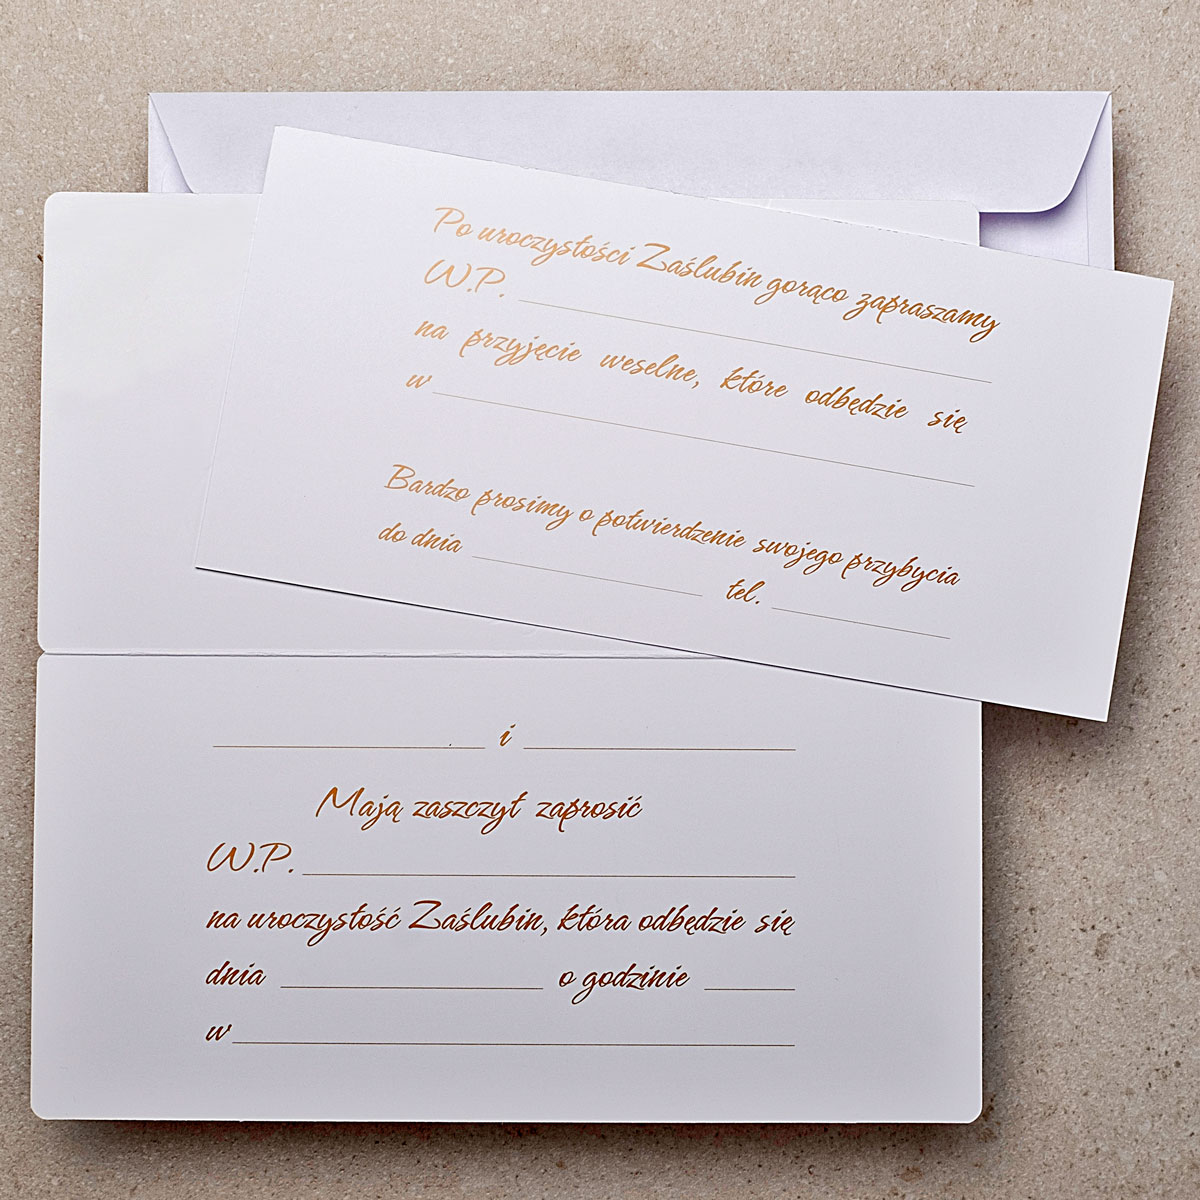 Po uroczystości Zaślubin gorąco zapraszamy
W.P.
na przyjęcie weselne, które odbędzie się
w
Bardzo prosimy o potwierdzenie swojego przybycia
do dnia tel.
i
Mają zaszczyt zaprosić
W.P.
na uroczystość Zaślubin, która odbędzie się
dnia o godzinie
w